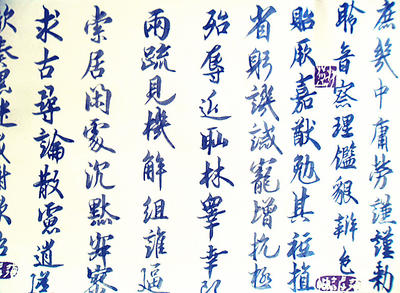 庶幾中庸勞謙謹勅
聆音察理鑑貌辨色
貽厥嘉猷勉其祗植
省躬譏誡寵增抗極
殆辱近恥林皋幸即
兩疏見機解組誰逼
索居閑處沉默寂寥
求古尋論散慮逍遙
欣奏累遣慼謝歡招